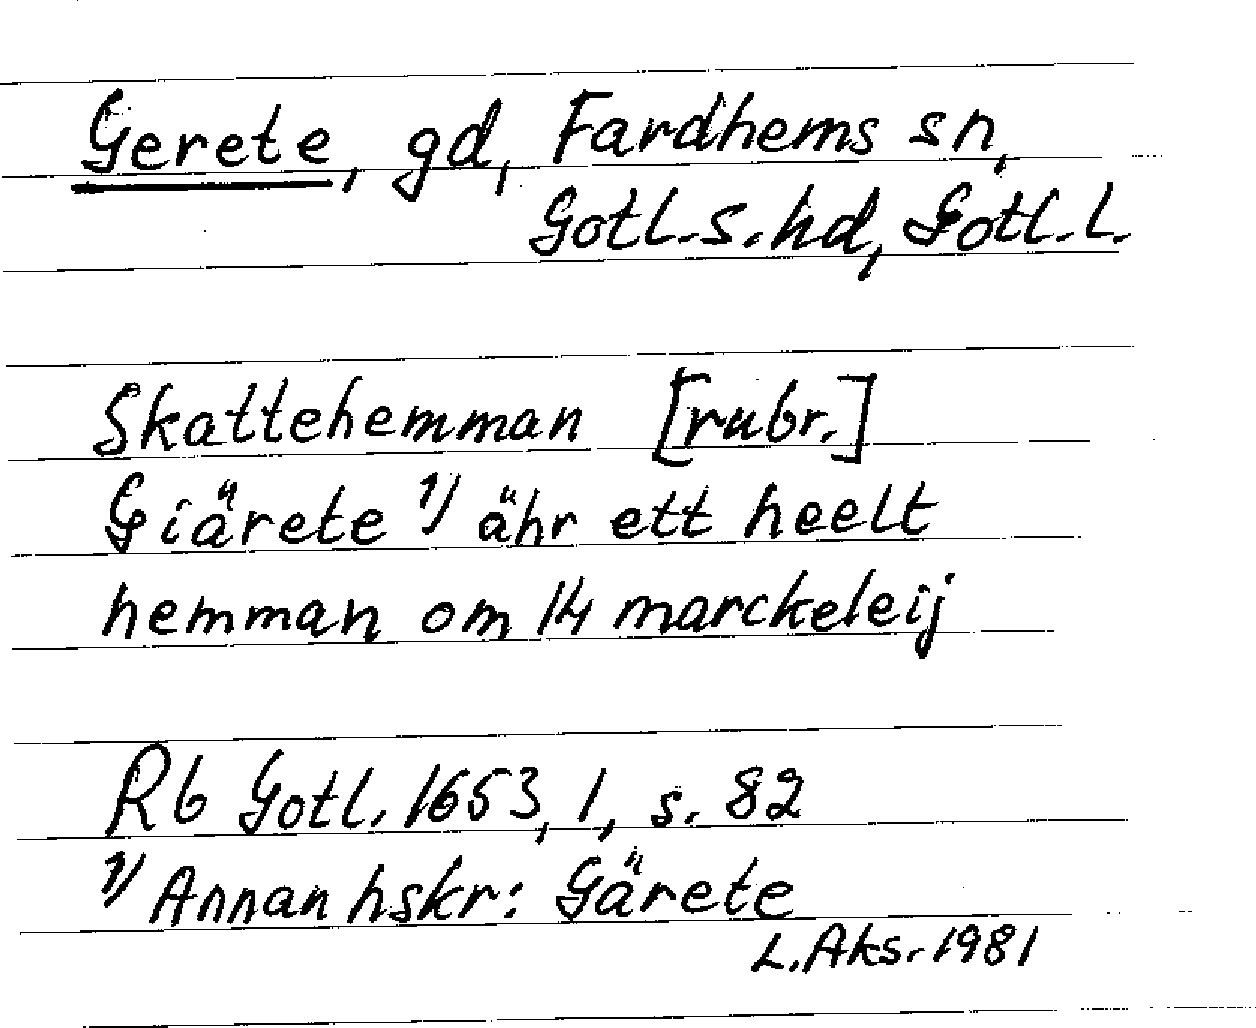 Gerete, gd, Fardhems sn,
Gotl.s.hd, Gotl.l.
Skattehemman [rubr.]
Giärete 1/ ähr ett heelt
hemman om 14 marckeleij
Rb Gotl. 1653, 1, s. 82
1/ Annan hskr: Gärete
L.Aks. 1981